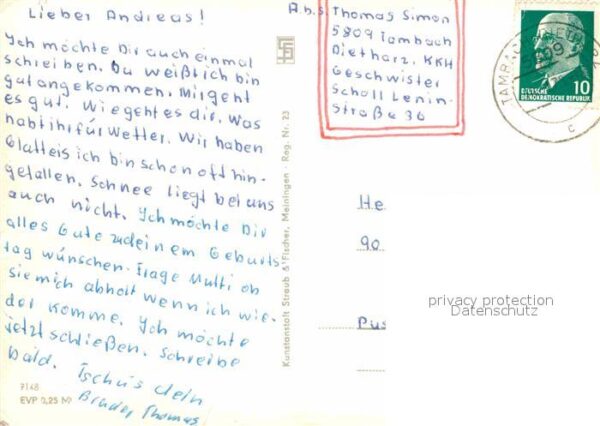 Lieber Andreas!
Ich möchte Dir auch einmal
schreiben. Du weißt ich bin
gut angekommen. Mir gent
es gut. Wie geht es dir. Was
habt ihr für Wetter. Wir haben
Glatteis ich bin schon oft hin-
gefallen. Schnee liegt bei uns
auch nicht. Ich möchte Dir
alles Gute zu deinem Geburts
tag wünschen. Frage Mutti ob
sie mich abholt wenn ich wie-
der komme. Ich möchte
jetzt schließen. Schreibe
bald. Tschüs dein
Bruder Thomas
7148
EVP 0,25 M
Kunstanstalt Straub & Fischer, Meiningen · Reg. Nr. 23
Abs. Thomas Simon
5809 Tambach
Dietharz, KKH
Geschwister
Scholl Lenin-
Straße 36
DEUTSCHE
DEMOKRATISCHE REPUBLIK
10
TAMBACH-DIETHARZ
5809
c
He
90
Pus
privacy protection
Datenschutz